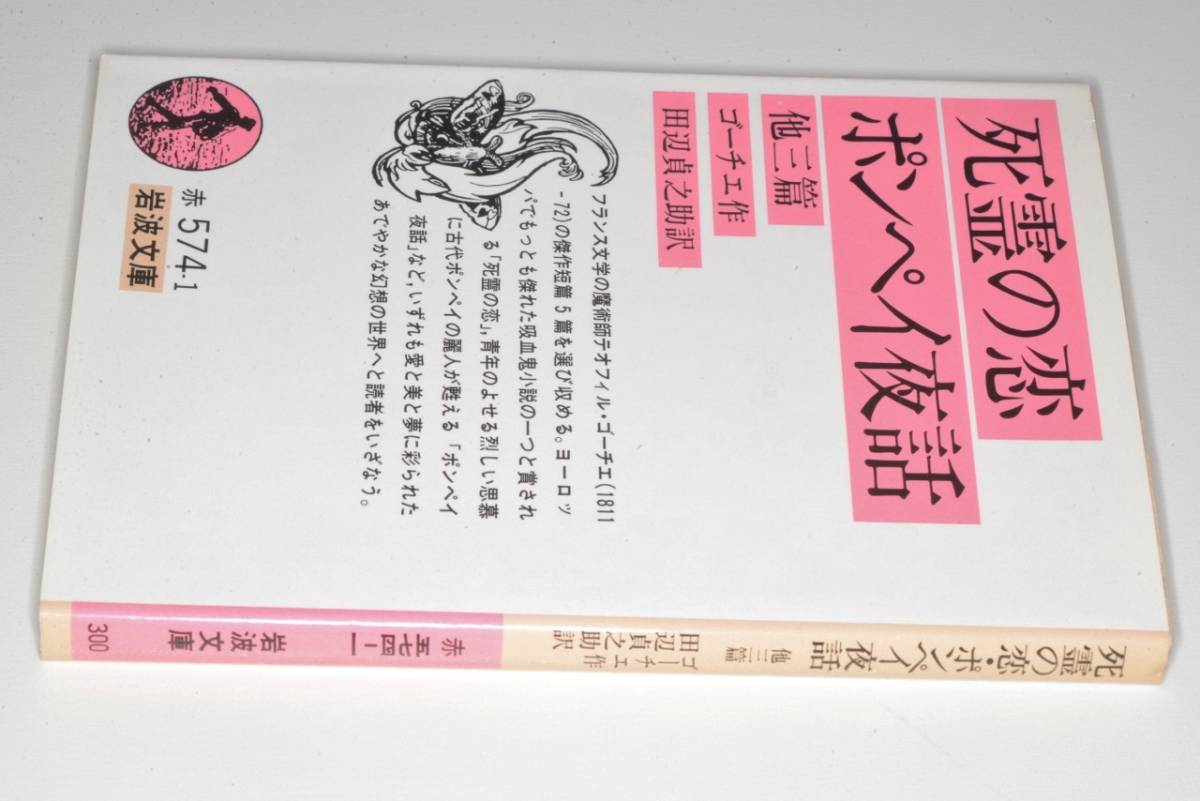 死霊の恋
ポンペイ夜話
他三篇
ゴーチエ作
田辺貞之助訳
フランス文学の魔術師テオフィル・ゴーチエ(1811
-72)の傑作短篇5篇を選び収める。ヨーロッ
パでもっとも傑れた吸血鬼小説の一つと賞され
る「死霊の恋」,青年のよせる烈しい思慕
に古代ポンペイの麗人が甦える「ポンペイ
夜話」など,いずれも愛と美と夢に彩られた
あでやかな幻想の世界へと読者をいざなう。
赤 574-1
岩波文庫
死霊の恋・ポンペイ夜話 他三篇
ゴーチエ作
田辺貞之助訳
赤 五七四-一
岩波文庫
300